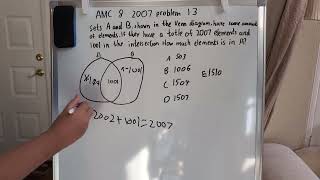 AMC 8 2007 problem 13
Sets A and B, shown in the Venn diagram, have same amount
of elements. If they have a totle of 2007 elements and
1001 in the intersection How much elements is in A?
A B
1001
A 503
B 1006
C 1504
D 1507
E: 1510
2002+1001=2007